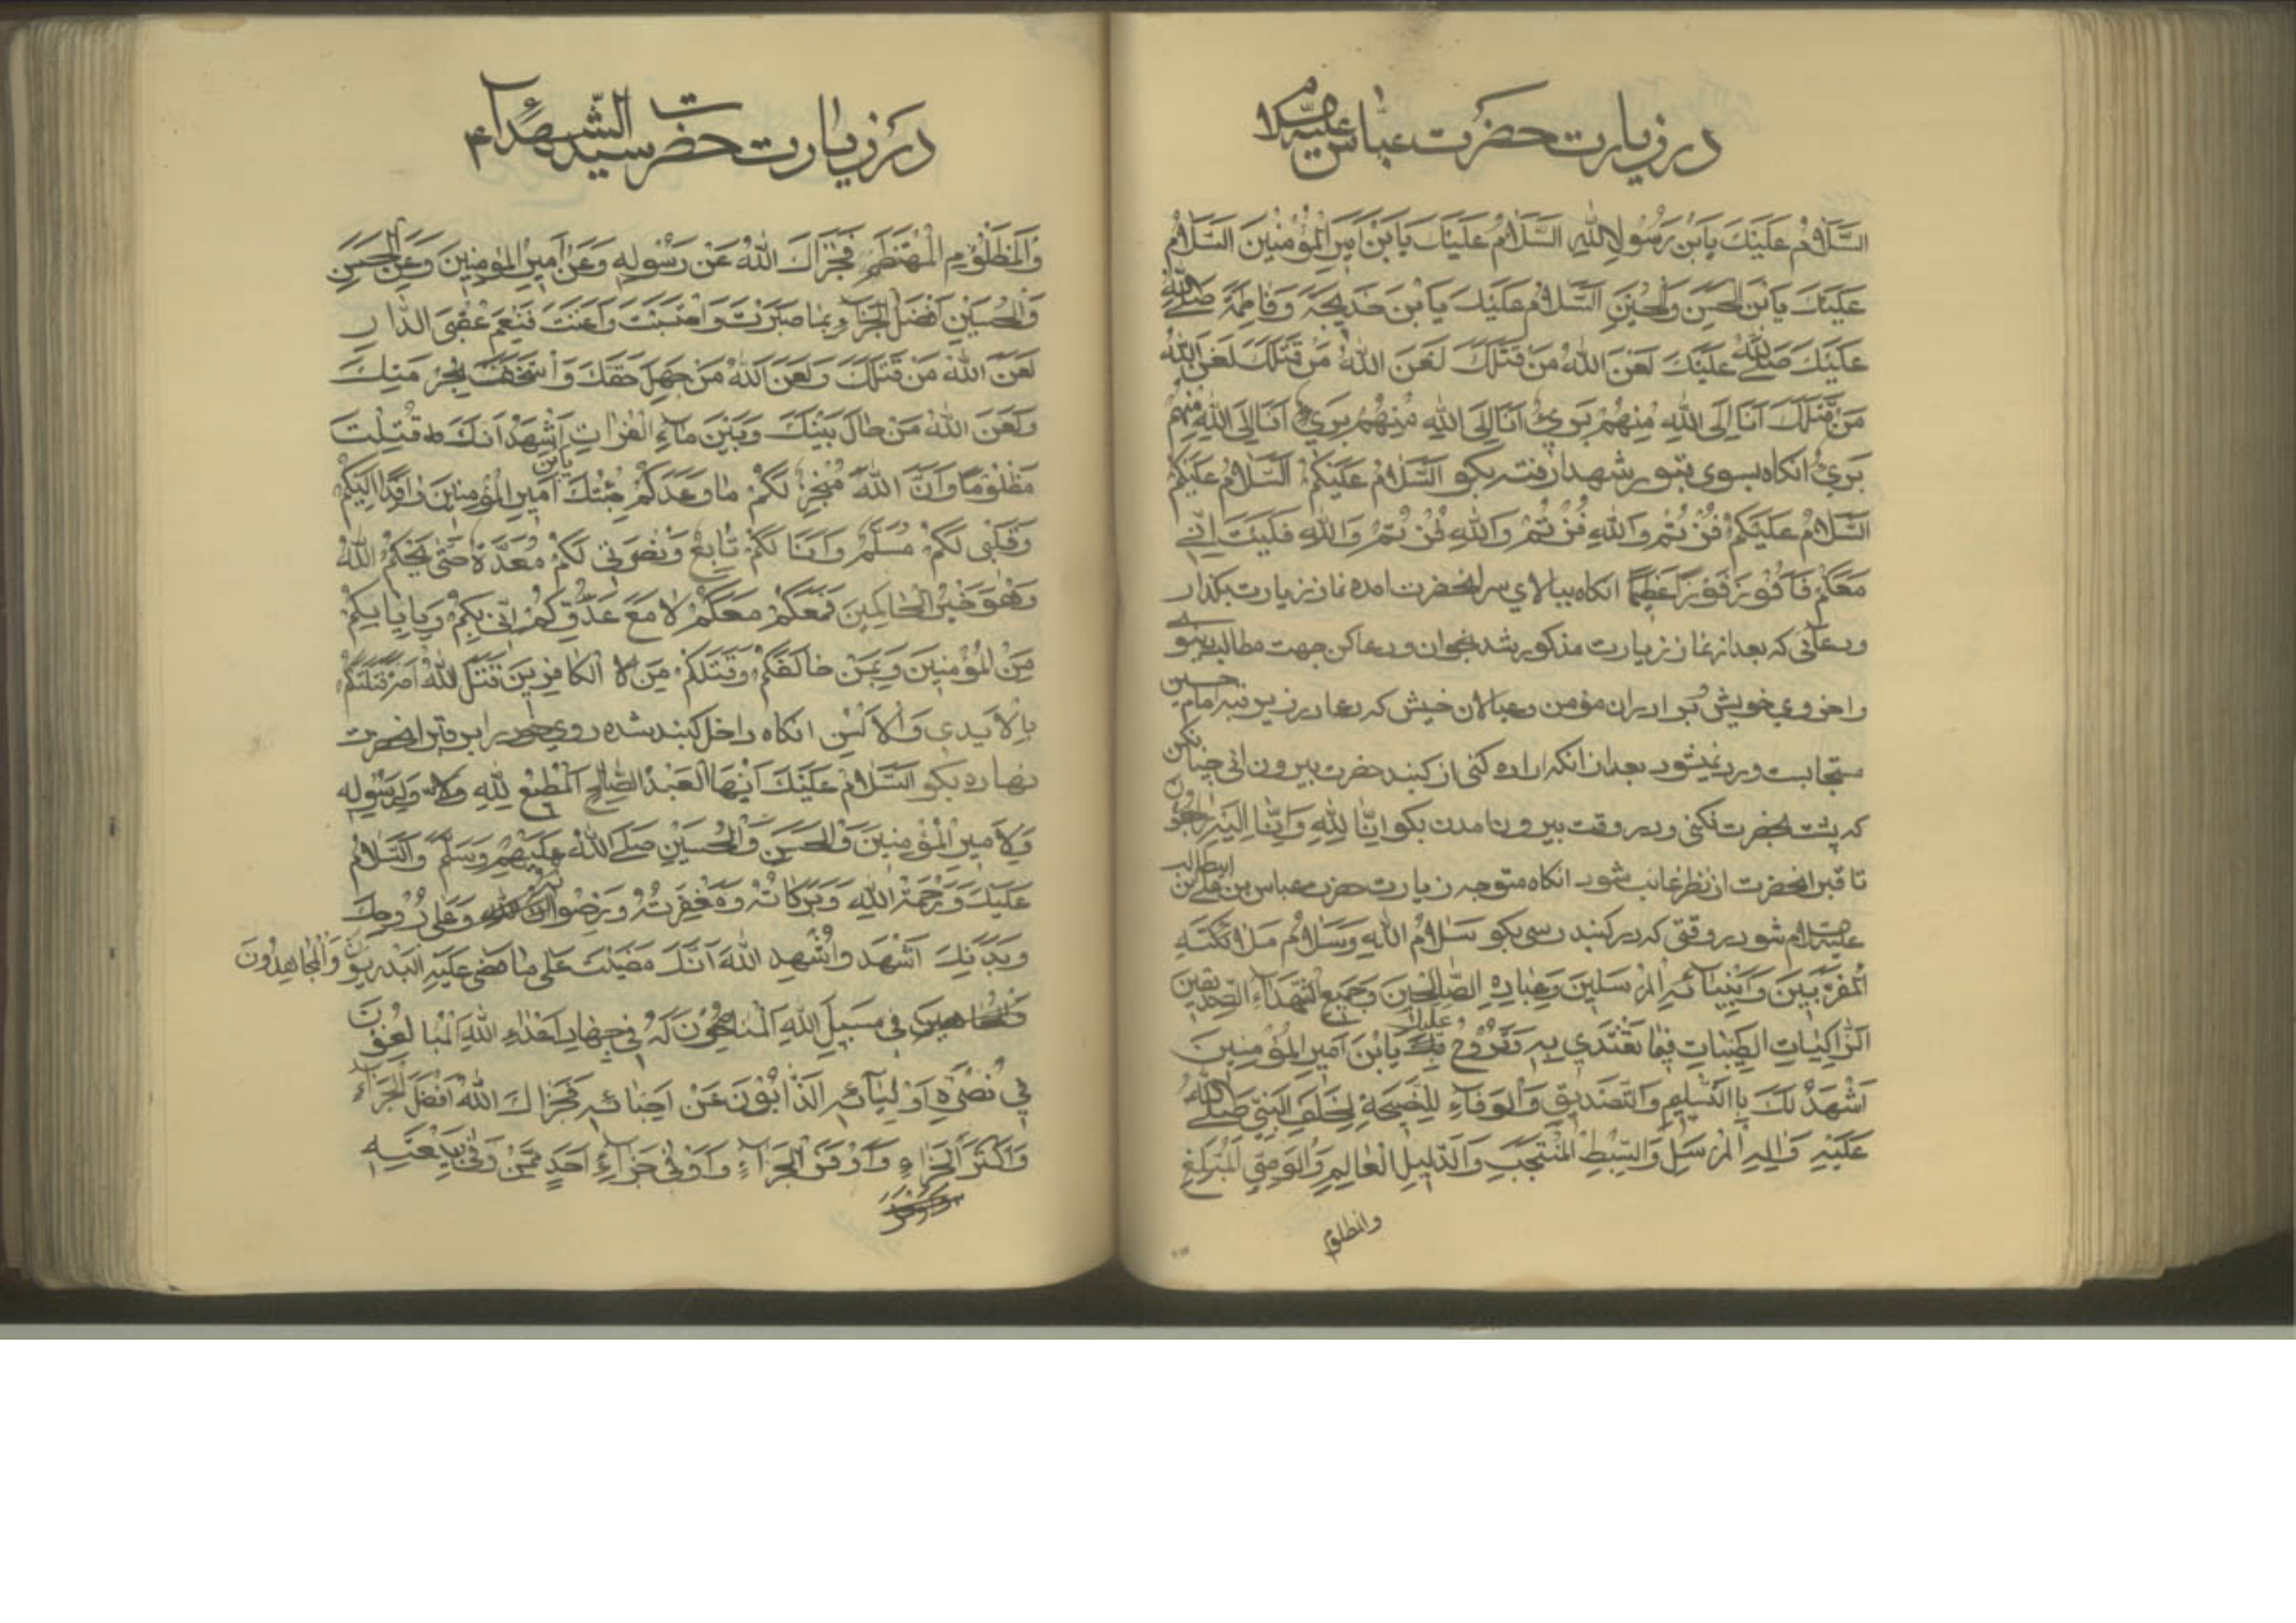 در زیارت حضرت عباس علیه السلام
السَّلَامُ عَلَیْكَ یَابْنَ رَسُولِ اللهِ السَّلَامُ عَلَیْكَ یَابْنَ اَمِیرِ الْمُؤْمِنِینَ السَّلَامُ
عَلَیْكَ یَابْنَ الْحَسَنِ وَالْحُسَیْنِ السَّلَامُ عَلَیْكَ یَابْنَ خَدِیجَةَ وَفَاطِمَةَ صَلَّی اللهُ
عَلَیْكَ صَلَّی اللهُ عَلَیْكَ لَعَنَ اللهُ مَنْ قَتَلَكَ لَعَنَ اللهُ مَنْ قَتَلَكَ لَعَنَ اللهُ
مَنْ قَتَلَكَ اَنَا اِلَی اللهِ مِنْهُمْ بَرِيءٌ اَنَا اِلَی اللهِ مِنْهُمْ بَرِيءٌ اَنَا اِلَی اللهِ مِنْهُمْ
بَرِيءٌ انکاه بسوی قبور شهدا رفته بکو السَّلَامُ عَلَیْکُمْ السَّلَامُ عَلَیْکُمْ
السَّلَامُ عَلَیْکُمْ فُزْتُمْ وَاللهِ فُزْتُمْ وَاللهِ فُزْتُمْ وَاللهِ فَلَیْتَ اَنّی
مَعَکُمْ فَاَفُوزَ فَوْزًا عَظِیمًا انکاه ببالای سر انحضرت امده نماز زیارت بکذار
ودعائی که بعد از نماز زیارت مذکور شد بخوان ودعا کن جهت مطالب دنیوی
واخروی خویش و برادران مؤمن وعیالان خیش که دعا در زیر قبه امام حسین
مستجابست ورد نمیشود بعد از انکه اراده کنی از کنبد حضرت بیرون ائی چنان کن
که پشت بحضرت نکنی ودر وقت بیرون امدن بکو اِنَّا لِلّٰهِ وَاِنَّا اِلَیْهِ رَاجِعُونَ
تا قبر انحضرت از نظر غائب شود انکاه متوجه زیارت حضرت عباس بن علی بن ابیطالب
علیه السلام شو در وقتی که در کنبد رسی بکو سَلَامُ اللهِ وَسَلَامُ مَلَائِکَتِهِ
الْمُقَرَّبِینَ وَاَنْبِیَائِهِ الْمُرْسَلِینَ وَعِبَادِهِ الصَّالِحِینَ وَجَمِیعِ الشُّهَدَاءِ الصِّدِّیقِینَ
الزَّاکِیَاتِ الطَّیِّبَاتِ فِیمَا تَغْتَدِي بِهِ وَتَرُوحُ عَلَیْكَ یَابْنَ اَمِیرِ الْمُؤْمِنِینَ
اَشْهَدُ لَكَ بِالتَّسْلِیمِ وَالتَّصْدِیقِ وَالْوَفَاءِ وَالنَّصِیحَةِ لِخَلَفِ النَّبِيِّ صَلَّی اللهُ
عَلَیْهِ وَالِهِ الْمُرْسَلِ وَالسِّبْطِ الْمُنْتَجَبِ وَالدَّلِیلِ الْعَالِمِ وَالْوَصِيِّ الْمُبَلِّغِ
در زیارت حضرت سید الشهداء
وَالْمَظْلُومِ الْمُهْتَضَمِ فَجَزَاكَ اللهُ عَنْ رَسُولِهِ وَعَنْ اَمِیرِ الْمُؤْمِنِینَ وَعَنِ الْحَسَنِ
وَالْحُسَیْنِ اَفْضَلَ الْجَزَاءِ بِمَا صَبَرْتَ وَاحْتَسَبْتَ وَاَعَنْتَ فَنِعْمَ عُقْبَی الدَّارِ
لَعَنَ اللهُ مَنْ قَتَلَكَ وَلَعَنَ اللهُ مَنْ جَهِلَ حَقَّكَ وَاسْتَخَفَّ بِحُرْمَتِكَ
وَلَعَنَ اللهُ مَنْ حَالَ بَیْنَكَ وَبَیْنَ مَاءِ الْفُرَاتِ اَشْهَدُ اَنَّكَ قُتِلْتَ
مَظْلُومًا وَاَنَّ اللهَ مُنْجِزٌ لَکُمْ مَا وَعَدَکُمْ جِئْتُكَ یابن اَمِیرِ الْمُؤْمِنِینَ وَافِدًا اِلَیْکُمْ
وَقَلْبِی لَکُمْ مُسَلِّمٌ وَاَنَا لَکُمْ تَابِعٌ وَنُصْرَتِی لَکُمْ مُعَدَّةٌ حَتّٰی یَحْکُمَ اللهُ
وَهُوَ خَیْرُ الْحَاکِمِینَ فَمَعَکُمْ مَعَکُمْ لَا مَعَ عَدُوِّکُمْ اِنّی بِکُمْ وَبِاِیَابِکُمْ
مِنَ الْمُؤْمِنِینَ وَبِمَنْ خَالَفَکُمْ وَقَتَلَکُمْ مِنَ الْکَافِرِینَ قَتَلَ اللهُ اُمَّةً قَتَلَتْکُمْ
بِالْاَیْدِی وَالْاَلْسُنِ انکاه داخل کنبد شده روی خود را بر قبر انحضرت
نهاده بکو السَّلَامُ عَلَیْكَ اَیُّهَا الْعَبْدُ الصَّالِحُ الْمُطِیعُ لِلّٰهِ وَلِرَسُولِهِ
وَلِاَمِیرِ الْمُؤْمِنِینَ وَالْحَسَنِ وَالْحُسَیْنِ صَلَّی اللهُ عَلَیْهِمْ وَسَلَّمَ وَالسَّلَامُ
عَلَیْكَ وَرَحْمَةُ اللهِ وَبَرَکَاتُهُ وَمَغْفِرَتُهُ وَرِضْوَانُهُ وَعَلٰی رُوحِكَ
وَبَدَنِكَ اَشْهَدُ وَاُشْهِدُ اللهَ اَنَّكَ مَضَیْتَ عَلٰی مَا مَضٰی عَلَیْهِ الْبَدْرِیُّونَ وَالْمُجَاهِدُونَ
فِی سَبِیلِ اللهِ الْمُنَاصِحُونَ لَهُ فِی جِهَادِ اَعْدَاءِ اللهِ الْمُبَالِغُونَ
فِی نُصْرَةِ اَوْلِیَائِهِ الذَّابُّونَ عَنْ اَحِبَّائِهِ فَجَزَاكَ اللهُ اَفْضَلَ الْجَزَاءِ
وَاَکْثَرَ الْجَزَاءِ وَاَوْفَرَ الْجَزَاءِ وَاَوْفٰی جَزَاءِ اَحَدٍ مِمَّنْ وَفٰی بِبَیْعَتِهِ